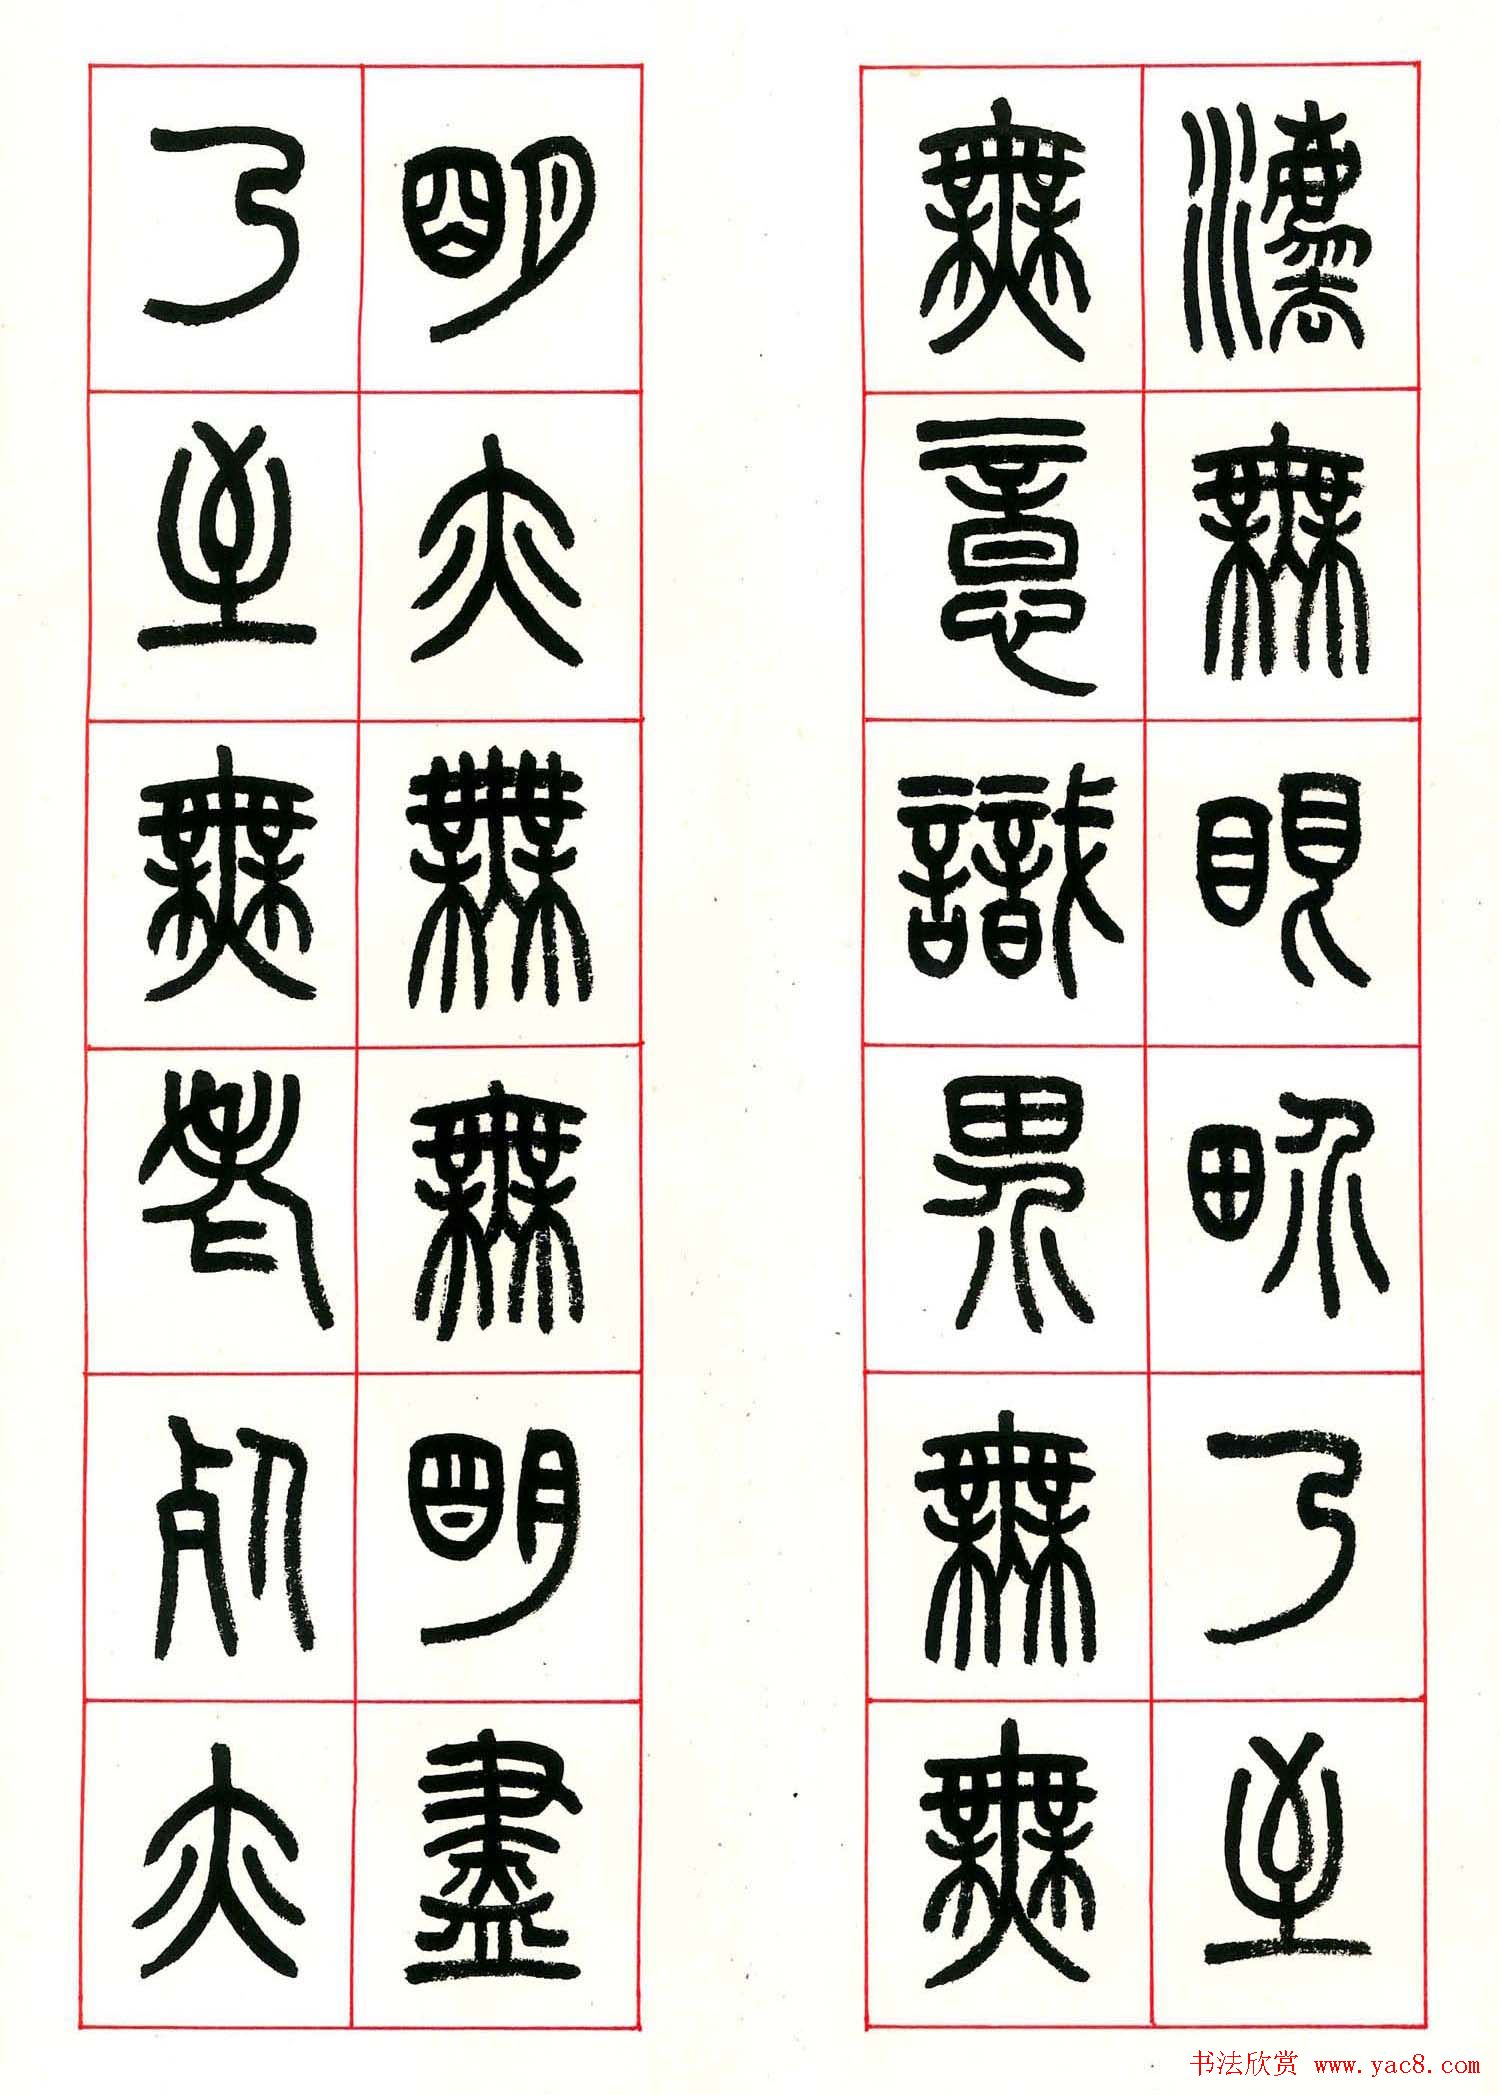 灋無眼畍乃至
無意識界無無
明亦無無明盡
乃至無老死亦
书法欣赏 www.yac8.com